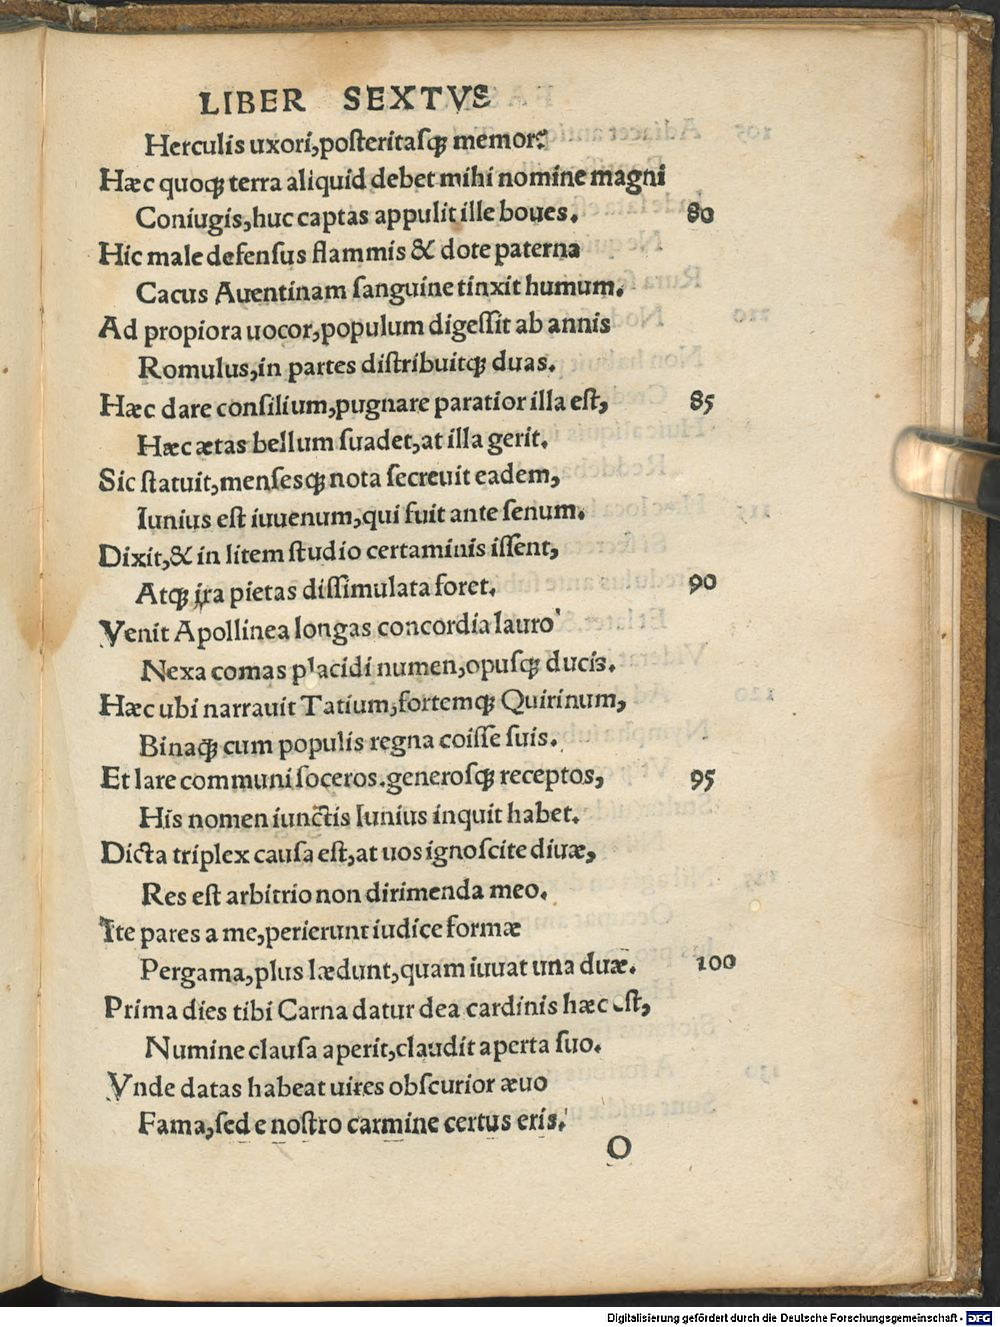 LIBER SEXTVS
Herculis uxori,posteritasq; memor:
Hæc quoq; terra aliquid debet mihi nomine magni
Coniugis,huc captas appulit ille boues. 80
Hic male defensus flammis & dote paterna
Cacus Auentinam sanguine tinxit humum.
Ad propiora uocor,populum digessit ab annis
Romulus,in partes distribuitq; duas.
Hæc dare consilium,pugnare paratior illa est, 85
Hæc ætas bellum suadet,at illa gerit.
Sic statuit,mensesq; nota secreuit eadem,
Iunius est iuuenum,qui fuit ante senum.
Dixit,& in litem studio certaminis issent,
Atq; ira pietas dissimulata foret. 90
Venit Apollinea longas concordia lauro
Nexa comas placidi numen,opusq; ducis.
Hæc ubi narrauit Tatium,fortemq; Quirinum,
Binaq; cum populis regna coisse suis.
Et lare communi soceros.generosq; receptos, 95
His nomen iunctis Iunius inquit habet.
Dicta triplex causa est,at uos ignoscite diuæ,
Res est arbitrio non dirimenda meo.
Ite pares a me,perierunt iudice formæ
Pergama,plus lædunt,quam iuuat una duæ. 100
Prima dies tibi Carna datur dea cardinis hæc est,
Numine clausa aperit,claudit aperta suo.
Vnde datas habeat uires obscurior æuo
Fama,sed e nostro carmine certus eris.
O
Digitalisierung gefördert durch die Deutsche Forschungsgemeinschaft - DFG